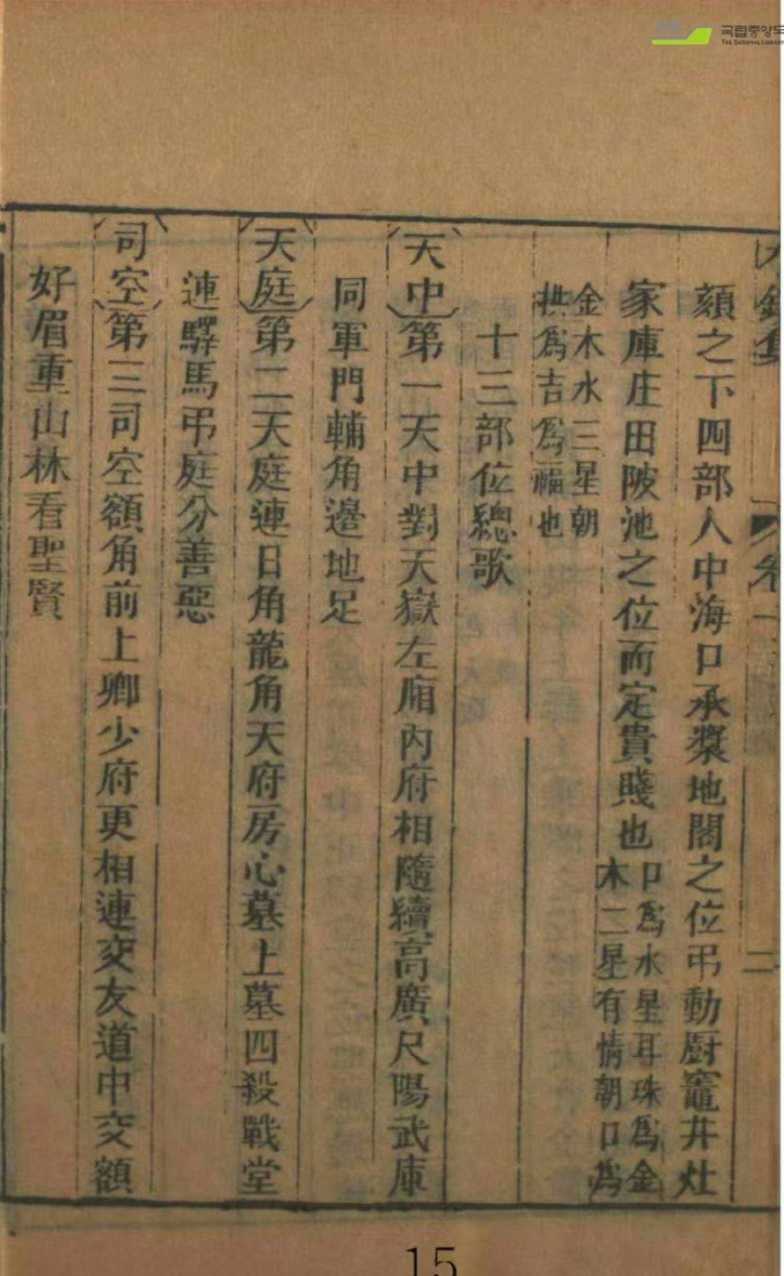 集 卷一 二
頦之下四部人中海口承漿地閣之位弔動廚竈井灶
家庫庄田陂池之位而定貴賤也
口爲水星耳珠爲金
木二星有情朝口爲
金木水三星朝
拱爲吉爲福也
十三部位總歌
天中第一天中對天嶽左廂內府相隨續高廣尺陽武庫
同軍門輔角邊地足
天庭第二天庭連日角龍角天府房心墓上墓四殺戰堂
連驛馬弔庭分善惡
司空第三司空額角前上卿少府更相連交友道中交額
好眉重山林看聖賢
국립중앙도
15